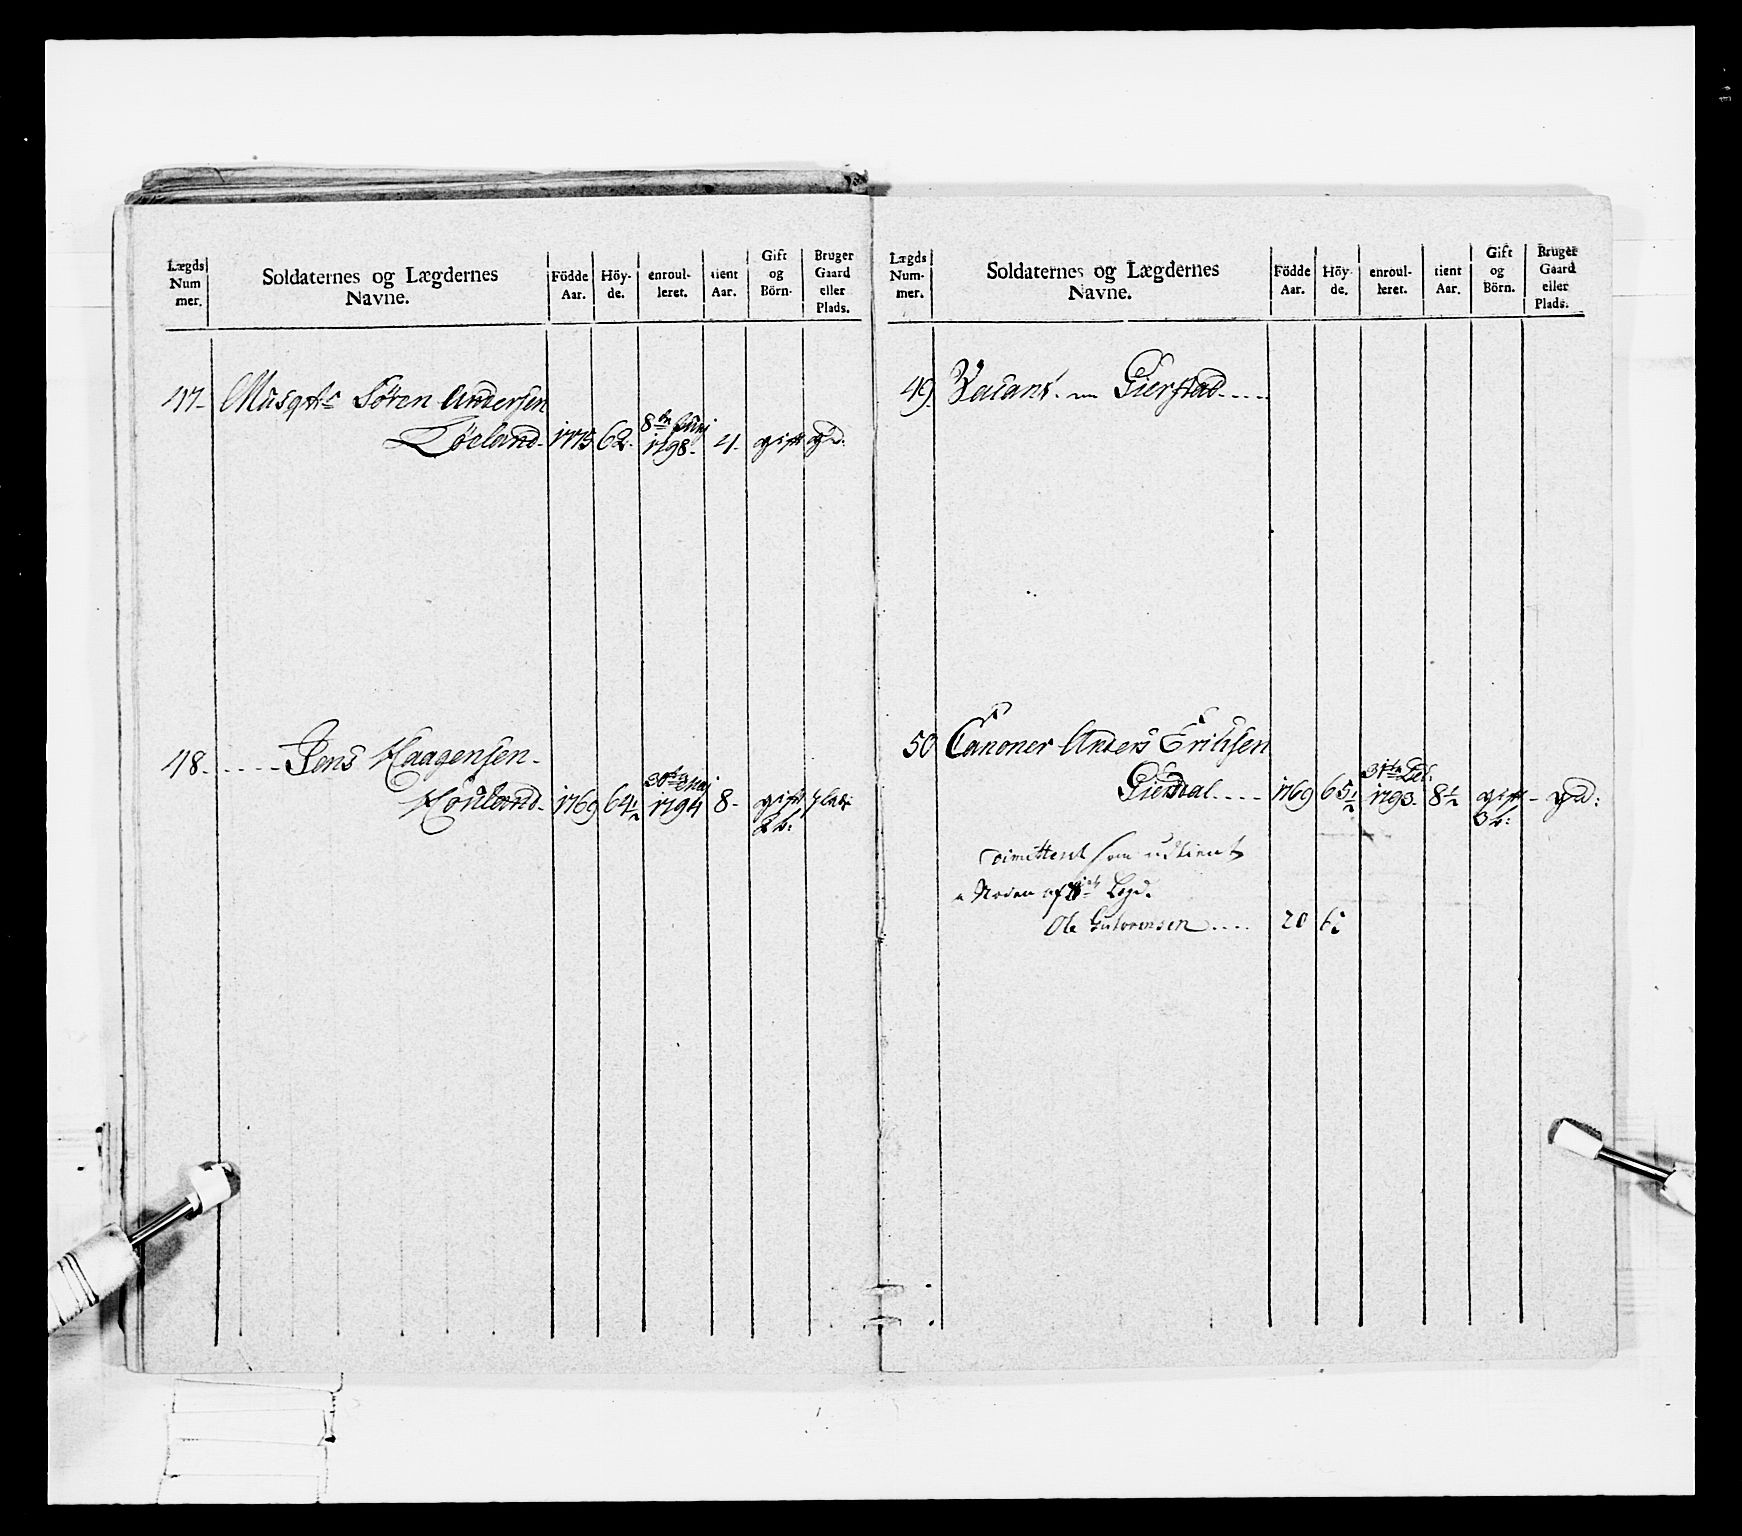 Lægds Num mer.
Soldaternes og Lægdernes Navne.
Födde Aar.
Höy- de.
enroul- leret.
tient Aar.
Gift og Börn.
Bruger Gaard eller Plads.
47. Musqtr Søren Andersen
8de Junj
Løeland. 1775 62. 1798. 4. gift gd:
48. ..... Jens Haagensen.
Houland. 1769 64½ 1794 8. gift plads
2 b:
Lægds Num- mer.
Soldaternes og Lægdernes Navne.
Födde Aar.
Höy- de.
enroul- leret.
tient Aar.
Gift og Börn.
Bruger Gaard eller Plads.
49. Vacant. Gierstad.....
50 Canoner Anders Erichsen
31te Dec:
Gierdal.... 1769 65½ 1793. 8½ gift - gd:
3 b:
dimitteret som udtient
af Legd.
Ole Gutormsen .... 20